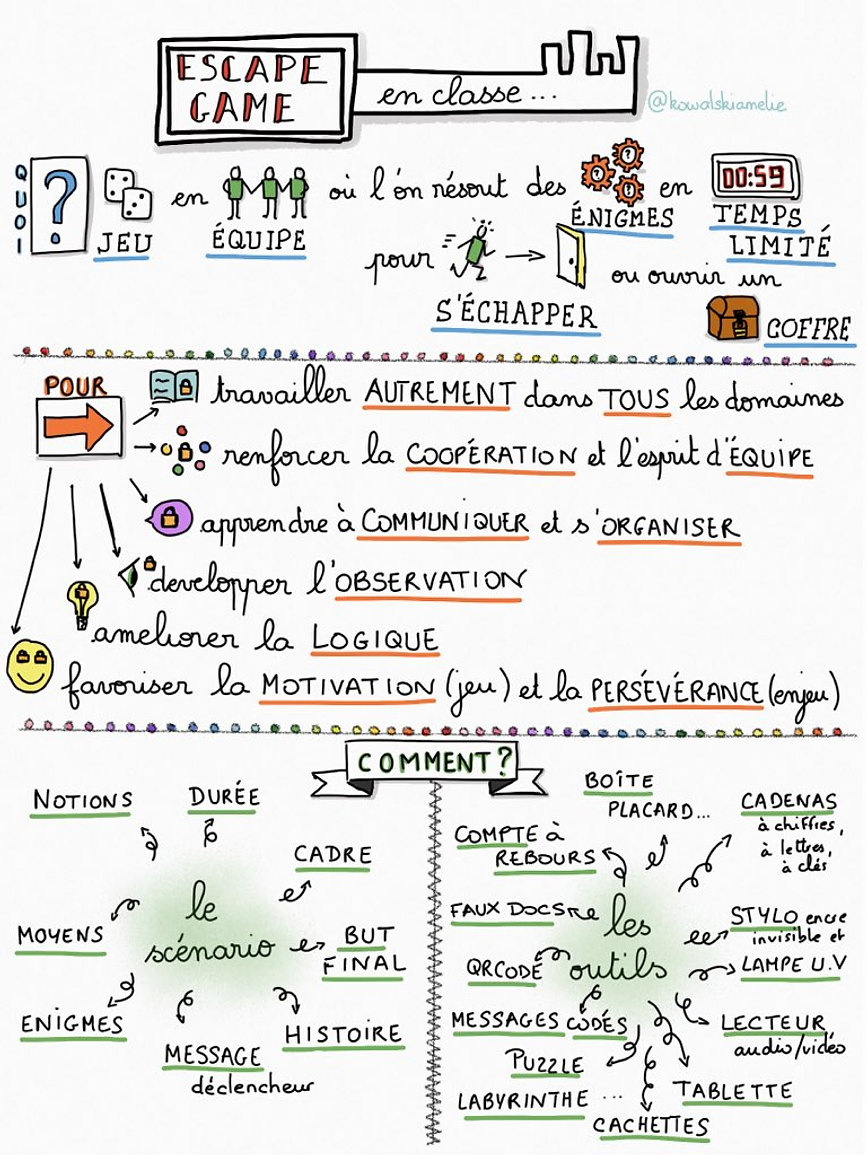 ESCAPE
GAME
en classe...
@kowalskiamelie
QUOI
?
JEU
en
ÉQUIPE
où l'on résout des
ÉNIGMES
en
00:59
TEMPS
LIMITÉ
pour
S'ÉCHAPPER
ou ouvrir un
COFFRE
POUR
travailler AUTREMENT dans TOUS les domaines
renforcer la COOPÉRATION et l'esprit d'ÉQUIPE
apprendre à COMMUNIQUER et s'ORGANISER
developper l'OBSERVATION
ameliorer la LOGIQUE
favoriser la MOTIVATION (jeu) et la PERSÉVÉRANCE (enjeu)
COMMENT?
le
scénario
NOTIONS
DURÉE
CADRE
BUT
FINAL
HISTOIRE
MESSAGE
déclencheur
ENIGMES
MOYENS
les
outils
BOÎTE
PLACARD...
CADENAS
à chiffres,
à lettres,
à clés
STYLO encre
invisible et
LAMPE U.V
LECTEUR
audio/vidéo
TABLETTE
CACHETTES
LABYRINTHE ...
PUZZLE
MESSAGES CODÉS
QRCODE
FAUX DOCS
COMPTE à
REBOURS